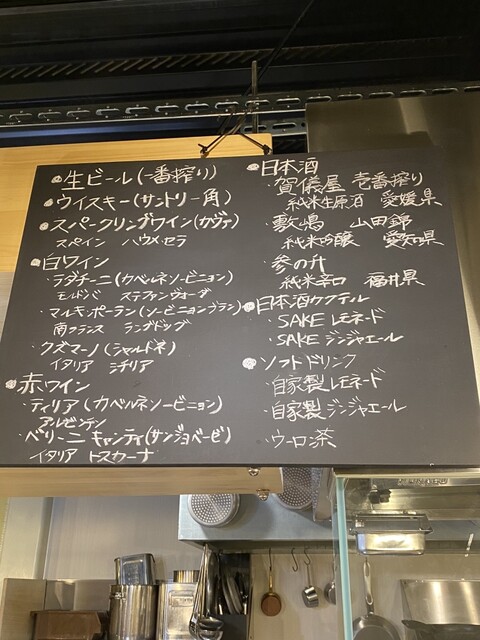 生ビール(一番搾り)
ウイスキー(サントリー角)
スパークリングワイン(カヴァ)
スペイン ハウメ・セラ
白ワイン
・ラダチーニ(カベルネソービニョン)
モルドバ ステファンヴォーダ
・マルキ・ボーラン(ソービニョンブラン)
南フランス ラングドック
・クズマーノ(シャルドネ)
イタリア シチリア
赤ワイン
・ティリア(カベルネソービニョン)
アルゼンチン
・ベリーニ キャンティ(サンジョベーゼ)
イタリア トスカーナ
日本酒
・賀儀屋 壱番搾り
純米生原酒 愛媛県
・敷嶋 山田錦
純米吟醸 愛知県
・参の升
純米辛口 福井県
日本酒カクテル
・SAKE レモネード
・SAKE ジンジャエール
ソフトドリンク
・自家製レモネード
・自家製ジンジャエール
・ウーロン茶